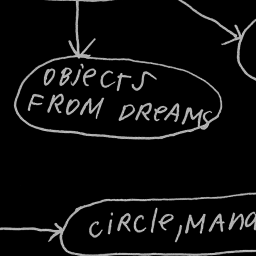 OBjeCTS
FROM DReAMS
CiRCLe, MANDA